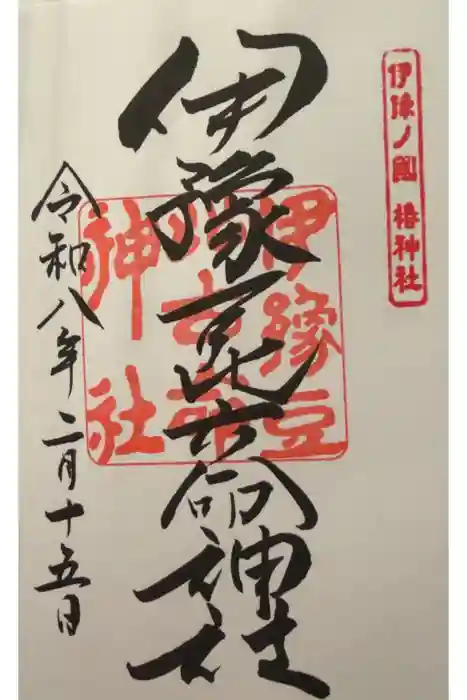 伊豫ノ國 椿神社
伊豫豆比古命神社
伊豫豆
比古命
神社
令和八年二月十五日